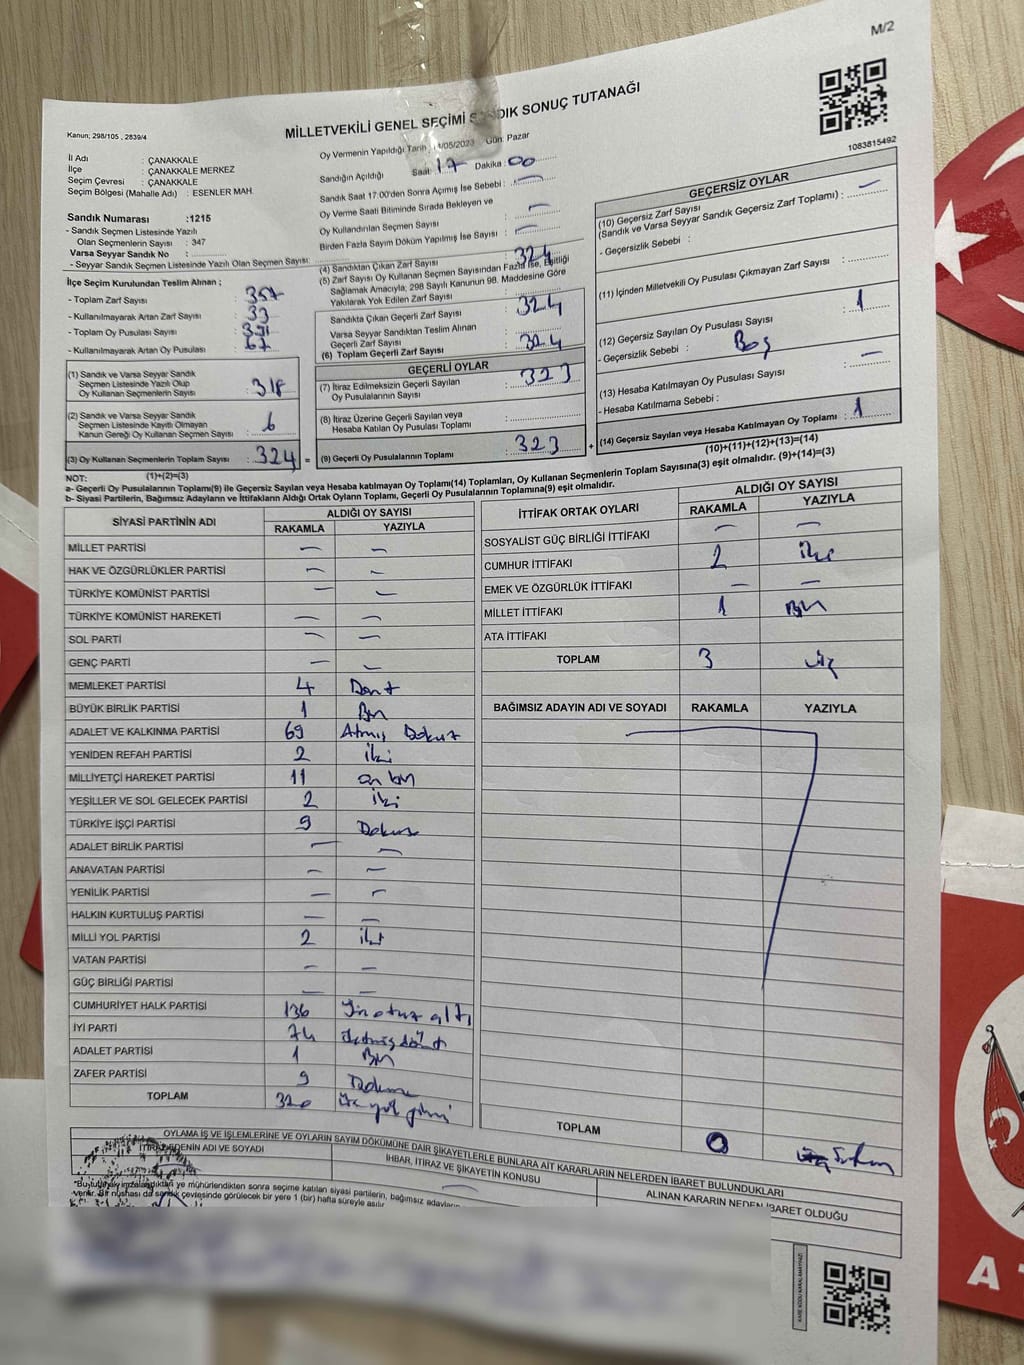 M/2
MİLLETVEKİLİ GENEL SEÇİMİ SANDIK SONUÇ TUTANAĞI
Kanun; 298/105 , 2839/4
1083815492
İl Adı : ÇANAKKALE
İlçe : ÇANAKKALE MERKEZ
Seçim Çevresi : ÇANAKKALE
Seçim Bölgesi (Mahalle Adı) : ESENLER MAH.
Sandık Numarası :1215
- Sandık Seçmen Listesinde Yazılı
Olan Seçmenlerin Sayısı : 347
Varsa Seyyar Sandık No :
- Seyyar Sandık Seçmen Listesinde Yazılı Olan Seçmen Sayısı:
İlçe Seçim Kurulundan Teslim Alınan ;
- Toplam Zarf Sayısı : 357
- Kullanılmayarak Artan Zarf Sayısı : 33
- Toplam Oy Pusulası Sayısı : 391
- Kullanılmayarak Artan Oy Pusulası : 67
(1) Sandık ve Varsa Seyyar Sandık
Seçmen Listesinde Yazılı Olup
Oy Kullanan Seçmenlerin Sayısı : 318
(2) Sandık ve Varsa Seyyar Sandık
Seçmen Listesinde Kayıtlı Olmayan
Kanun Gereği Oy Kullanan Seçmen Sayısı : 6
(3) Oy Kullanan Seçmenlerin Toplam Sayısı : 324
(1)+(2)=(3)
Oy Vermenin Yapıldığı Tarih 14/05/2023 Gün: Pazar
Sandığın Açıldığı Saat 17 Dakika 00
Sandık Saat 17:00'den Sonra Açılmış İse Sebebi : —
Oy Verme Saati Bitiminde Sırada Bekleyen ve
Oy Kullandırılan Seçmen Sayısı : —
Birden Fazla Sayım Döküm Yapılmış İse Sayısı : —
(4) Sandıktan Çıkan Zarf Sayısı : 324
(5) Zarf Sayısı Oy Kullanan Seçmen Sayısından Fazla İse, Eşitliği
Sağlamak Amacıyla; 298 Sayılı Kanunun 98. Maddesine Göre
Yakılarak Yok Edilen Zarf Sayısı :
Sandıkta Çıkan Geçerli Zarf Sayısı : 324
Varsa Seyyar Sandıktan Teslim Alınan
Geçerli Zarf Sayısı :
(6) Toplam Geçerli Zarf Sayısı : 324
GEÇERLİ OYLAR
(7) İtiraz Edilmeksizin Geçerli Sayılan
Oy Pusulalarının Sayısı : 323
(8) İtiraz Üzerine Geçerli Sayılan veya
Hesaba Katılan Oy Pusulası Toplamı :
(9) Geçerli Oy Pusulalarının Toplamı : 323
GEÇERSİZ OYLAR
(10) Geçersiz Zarf Sayısı
(Sandık ve Varsa Seyyar Sandık Geçersiz Zarf Toplamı) : —
- Geçersizlik Sebebi :
(11) İçinden Milletvekili Oy Pusulası Çıkmayan Zarf Sayısı :
(12) Geçersiz Sayılan Oy Pusulası Sayısı : 1
- Geçersizlik Sebebi : Boş
(13) Hesaba Katılmayan Oy Pusulası Sayısı : —
- Hesaba Katılmama Sebebi :
(14) Geçersiz Sayılan veya Hesaba Katılmayan Oy Toplamı : 1
(10)+(11)+(12)+(13)=(14)
NOT:
a- Geçerli Oy Pusulalarının Toplamı(9) ile Geçersiz Sayılan veya Hesaba katılmayan Oy Toplamı(14) Toplamları, Oy Kullanan Seçmenlerin Toplam Sayısına(3) eşit olmalıdır. (9)+(14)=(3)
b- Siyasi Partilerin, Bağımsız Adayların ve İttifakların Aldığı Ortak Oyların Toplamı, Geçerli Oy Pusulalarının Toplamına(9) eşit olmalıdır.
SİYASİ PARTİNİN ADI ALDIĞI OY SAYISI
RAKAMLA YAZIYLA
MİLLET PARTİSİ — —
HAK VE ÖZGÜRLÜKLER PARTİSİ — —
TÜRKİYE KOMÜNİST PARTİSİ — —
TÜRKİYE KOMÜNİST HAREKETİ — —
SOL PARTİ — —
GENÇ PARTİ — —
MEMLEKET PARTİSİ 4 Dört
BÜYÜK BİRLİK PARTİSİ 1 Bir
ADALET VE KALKINMA PARTİSİ 69 Atmış Dokuz
YENİDEN REFAH PARTİSİ 2 iki
MİLLİYETÇİ HAREKET PARTİSİ 11 on bir
YEŞİLLER VE SOL GELECEK PARTİSİ 2 iki
TÜRKİYE İŞÇİ PARTİSİ 9 Dokuz
ADALET BİRLİK PARTİSİ — —
ANAVATAN PARTİSİ — —
YENİLİK PARTİSİ — —
HALKIN KURTULUŞ PARTİSİ — —
MİLLİ YOL PARTİSİ 2 iki
VATAN PARTİSİ — —
GÜÇ BİRLİĞİ PARTİSİ — —
CUMHURİYET HALK PARTİSİ 136 Yüz otuz altı
İYİ PARTİ 74 Yetmiş dört
ADALET PARTİSİ 1 Bir
ZAFER PARTİSİ 9 Dokuz
TOPLAM 320 üç yüz yirmi
İTTİFAK ORTAK OYLARI ALDIĞI OY SAYISI
RAKAMLA YAZIYLA
SOSYALİST GÜÇ BİRLİĞİ İTTİFAKI — —
CUMHUR İTTİFAKI 2 iki
EMEK VE ÖZGÜRLÜK İTTİFAKI — —
MİLLET İTTİFAKI 1 Bir
ATA İTTİFAKI
TOPLAM 3 üç
BAĞIMSIZ ADAYIN ADI VE SOYADI RAKAMLA YAZIYLA
TOPLAM 0
OYLAMA İŞ VE İŞLEMLERİNE VE OYLARIN SAYIM DÖKÜMÜNE DAİR ŞİKAYETLERLE BUNLARA AİT KARARLARIN NELERDEN İBARET BULUNDUKLARI
İTİRAZ EDENİN ADI VE SOYADI İHBAR, İTİRAZ VE ŞİKAYETİN KONUSU ALINAN KARARIN NEDEN İBARET OLDUĞU
ve mühürlendikten sonra seçime katılan siyasi partilerin, bağımsız adayların
Bir nüshası da sandık çevresinde görülecek bir yere 1 (bir) hafta süreyle asılır.
A